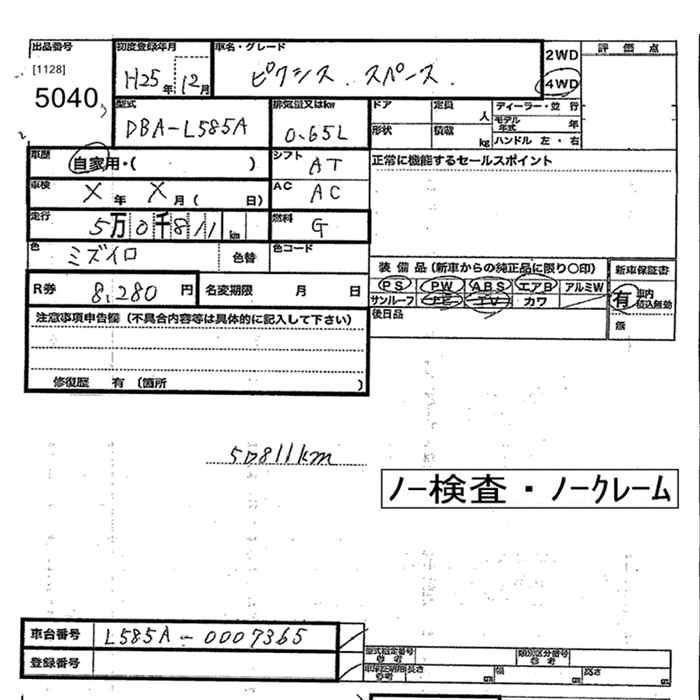 出品番号 初度登録年月 車名・グレード 2WD 評価点
[1128] H25年 12月 ピクシス.スペース. 4WD
5040
型式 排気量又はkw ドア 定員 人 ディーラー・並行
DBA-L585A 0.65L 形状 積載 kg モデル年式 年
ハンドル 左・右
車歴 自家用・( ) シフト AT 正常に機能するセールスポイント
車検 X年 X月( 日) AC AC
走行 5万0千811km 燃料 G
色 ミズイロ 色替 色コード
装備品(新車からの純正品に限り〇印) 新車保証書
R券 8,280円 名変期限 月 日 PS PW ABS エアB アルミW 有
サンルーフ TV カワ 無
後日品
注意事項申告欄(不具合内容等は具体的に記入して下さい)
修復歴 有(箇所 )
50811km
ノー検査・ノークレーム
車台番号 L585A-0007365
登録番号
型式指定番号 参考 類別区分番号 参考
長さ cm 幅 cm 高さ cm